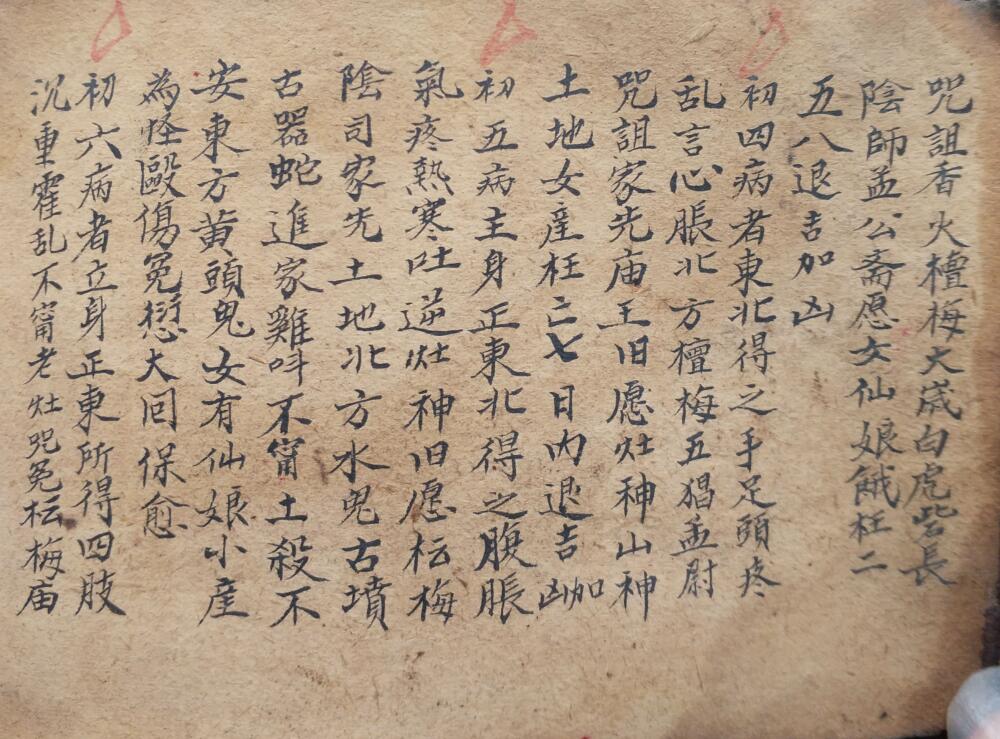 咒詛香火檀梅大歲白虎砦長
陰師孟公斋愿女仙娘餓枉二
五八退吉加凶
初四病者東北得之手足頭疼
乱言心脹北方檀梅五猖孟尉
咒詛家先庙王旧愿灶神山神
土地女產枉亡七日内退吉加凶
初五病主身正東北得之腹脹
氣疼熱寒吐逆灶神旧愿枟梅
陰司家先土地北方水鬼古墳
古器蛇進家雞呌不甯土殺不
安東方黃頭鬼女有仙娘小産
為怪毆傷冤愆大囘保愈
初六病者立身正東所得四肢
沉重霍乱不甯老灶咒冤枟梅庙